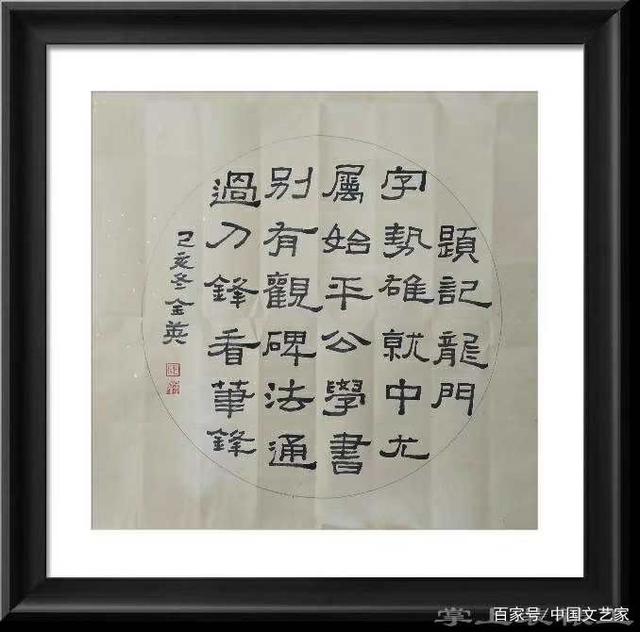 題記龍門
字勢雄就中尤
屬始平公學書
別有觀碑法通
過刀鋒看筆鋒
己亥冬金英
百家号/中国文艺家